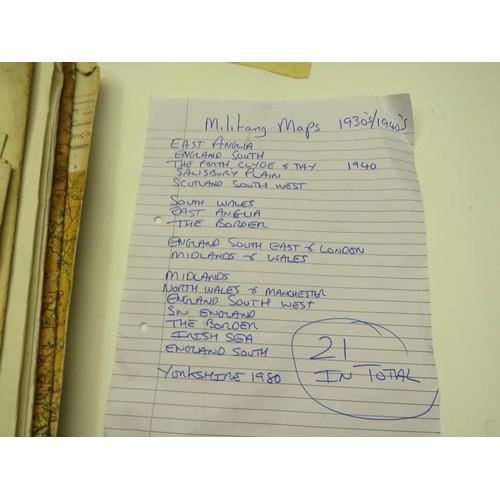 Military Maps 1930's/1940's
EAST ANGLIA
ENGLAND SOUTH
THE FORTH, CLYDE & TAY 1940
SALISBURY PLAIN
SCOTLAND SOUTH WEST
SOUTH WALES
EAST ANGLIA
THE BORDER
ENGLAND SOUTH EAST & LONDON
MIDLANDS & WALES
MIDLANDS
NORTH WALES & MANCHESTER
ENGLAND SOUTH WEST
SW ENGLAND
THE BORDER
IRISH SEA
ENGLAND SOUTH
YORKSHIRE 1980
21
IN TOTAL